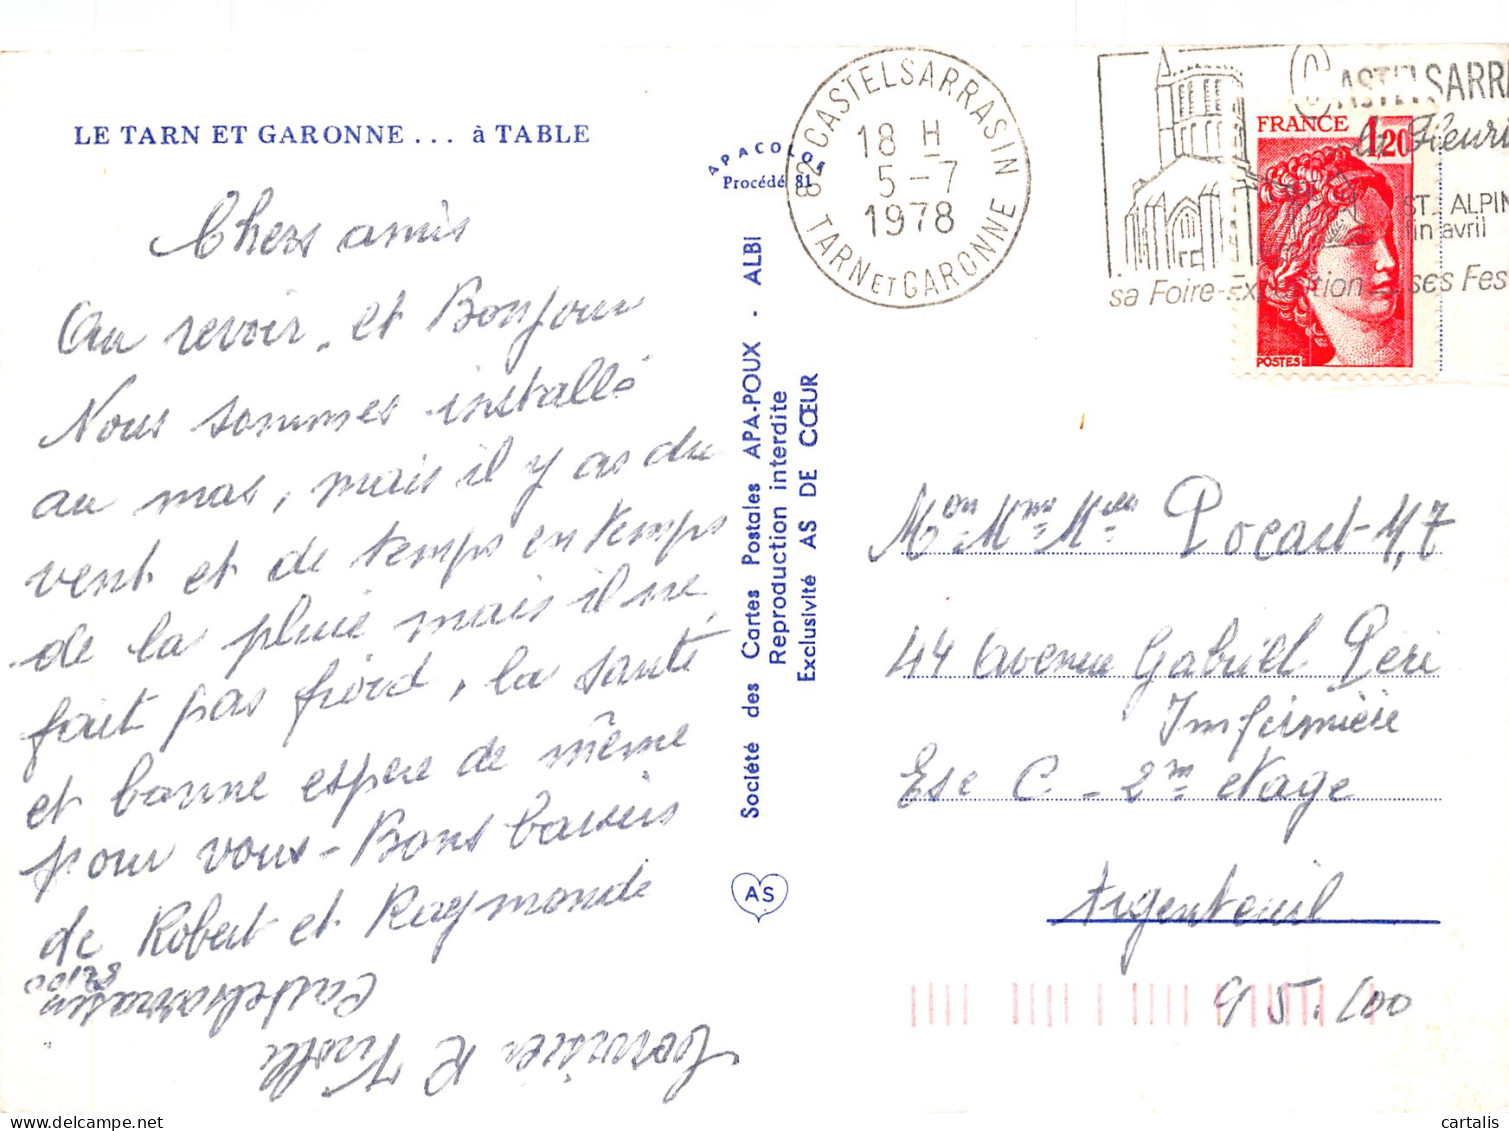 LE TARN ET GARONNE ... à TABLE
Chers amis
Au revoir, et Bonjour
Nous sommes installé
au mas, mais il y as du
vent et de temps en temps
de la pluie mais il ne
fait pas froid, la santé
et bonne espere de même
pour vous - Bons baisers
de Robert et Raymonde
R
Castelsarrasin
82100
APACOLOR
Procédé 81
Société des Cartes Postales APA-POUX - ALBI
Reproduction interdite
Exclusivité AS DE CŒUR
AS
82 CASTELSARRASIN
18 H
5-7
1978
TARN ET GARONNE
CASTELSARR
Fleuri
ST. ALPIN
fin avril
sa Foire-Exposition ses Fes
FRANCE 1,20
POSTES
Mon Mme Melle Pocart
44 avenue Gabriel Péri
Infirmière
Esc C - 2m etage
Argenteuil
95.100
delcampe.net
cartalis